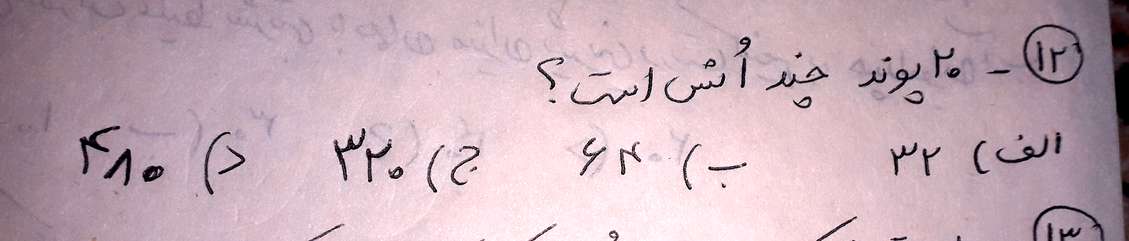 ۱۲ - ۲۰ پوند چند اُنس است؟
الف) ۳۲ ب) ۶۴ ج) ۳۲۰ د) ۴۸۰
۱۳